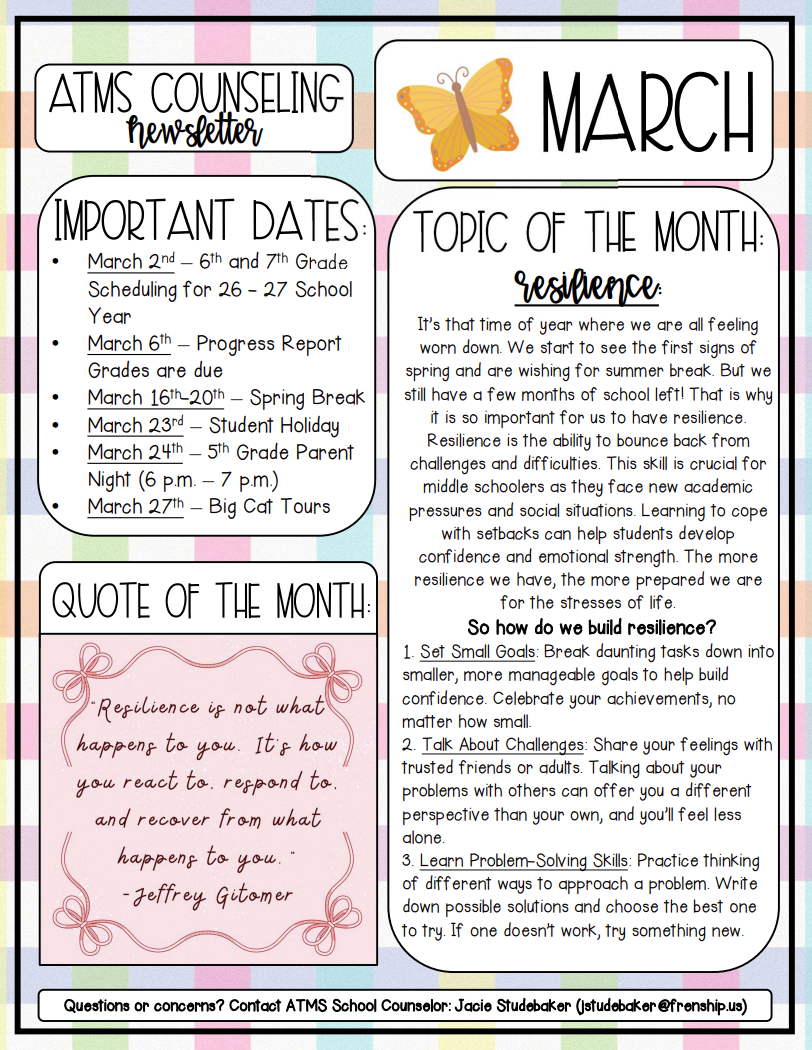 ATMS COUNSELING
newsletter
MARCH
IMPORTANT DATES:
• March 2nd – 6th and 7th Grade
Scheduling for 26 – 27 School
Year
• March 6th – Progress Report
Grades are due
• March 16th-20th – Spring Break
• March 23rd – Student Holiday
• March 24th – 5th Grade Parent
Night (6 p.m. – 7 p.m.)
• March 27th – Big Cat Tours
QUOTE OF THE MONTH:
"Resilience is not what
happens to you. It's how
you react to, respond to,
and recover from what
happens to you."
-Jeffrey Gitomer
TOPIC OF THE MONTH:
resilience:
It's that time of year where we are all feeling
worn down. We start to see the first signs of
spring and are wishing for summer break. But we
still have a few months of school left! That is why
it is so important for us to have resilience.
Resilience is the ability to bounce back from
challenges and difficulties. This skill is crucial for
middle schoolers as they face new academic
pressures and social situations. Learning to cope
with setbacks can help students develop
confidence and emotional strength. The more
resilience we have, the more prepared we are
for the stresses of life.
So how do we build resilience?
1. Set Small Goals: Break daunting tasks down into
smaller, more manageable goals to help build
confidence. Celebrate your achievements, no
matter how small.
2. Talk About Challenges: Share your feelings with
trusted friends or adults. Talking about your
problems with others can offer you a different
perspective than your own, and you'll feel less
alone.
3. Learn Problem-Solving Skills: Practice thinking
of different ways to approach a problem. Write
down possible solutions and choose the best one
to try. If one doesn't work, try something new.
Questions or concerns? Contact ATMS School Counselor: Jacie Studebaker (jstudebaker@frenship.us)